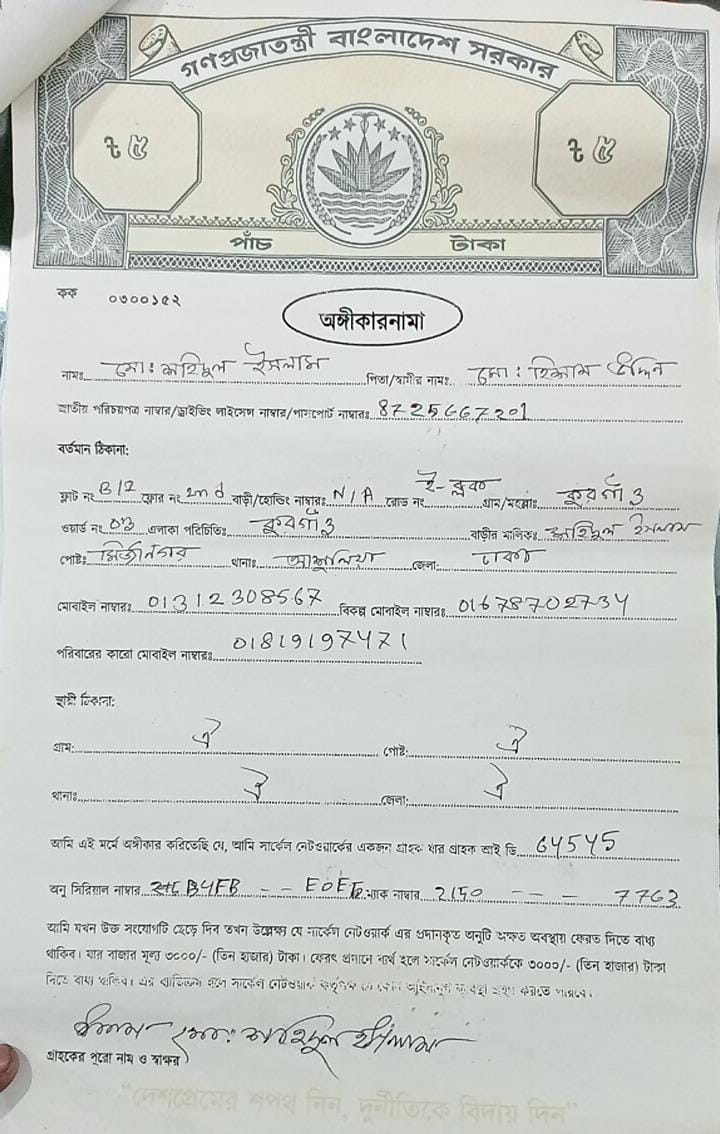 গণপ্রজাতন্ত্রী বাংলাদেশ সরকার
৳ ৫ ৳ ৫
পাঁচ টাকা
কক ০৩০০১৫২
অঙ্গীকারনামা
নামঃ মো: শহিদুল ইসলাম পিতা/স্বামীর নামঃ মো:
জাতীয় পরিচয়পত্র নাম্বার/ড্রাইভিং লাইসেন্স নাম্বার/পাসপোর্ট নাম্বারঃ 8725667201
বর্তমান ঠিকানা:
ফ্লাট নং B/2 ফ্লোর নং 2nd বাড়ী/হোল্ডিং নাম্বারঃ N/A রোড নং ই-ব্লক গ্রাম/মহল্লাঃ কুরগাঁ 3
ওয়ার্ড নং 03 এলাকা পরিচিতিঃ কুরগাঁ 3 বাড়ীর মালিকঃ শহিদুল ইসলাম
পোষ্টঃ মির্জানগর থানাঃ আশুলিয়া জেলা: ঢাকা
মোবাইল নাম্বারঃ 01312308567 বিকল্প মোবাইল নাম্বারঃ 01678702734
পরিবারের কারো মোবাইল নাম্বারঃ 01819197471
স্থায়ী ঠিকানা:
গ্রাম: ঐ পোষ্ট: ঐ
থানাঃ ঐ জেলা: ঐ
আমি এই মর্মে অঙ্গীকার করিতেছি যে, আমি সার্কেল নেটওয়ার্কের একজন গ্রাহক যার গ্রাহক আই ডি 64545
অনু সিরিয়াল নাম্বার B4FB -- E0E ম্যাক নাম্বার 2150 --- 7763
আমি যখন উক্ত সংযোগটি ছেড়ে দিব তখন উল্লেক্ষ্য যে সার্কেল নেটওয়ার্ক এর প্রদানকৃত অনুটি অক্ষত অবস্থায় ফেরত দিতে বাধ্য
থাকিব। যার বাজার মূল্য ৩০০০/- (তিন হাজার) টাকা। ফেরৎ প্রদানে ব্যর্থ হলে সার্কেল নেটওয়ার্ককে ৩০০০/- (তিন হাজার) টাকা
দিতে বাধ্য থাকিব। এর ব্যতিক্রম হলে সার্কেল নেটওয়ার্ক কর্তৃপক্ষ যে কোন আইনানুগ ব্যবস্থা গ্রহণ করতে পারবে।
মো: শহিদুল ইসলাম
গ্রাহকের পুরো নাম ও স্বাক্ষর
"দেশপ্রেমের শপথ নিন, দুর্নীতিকে বিদায় দিন"